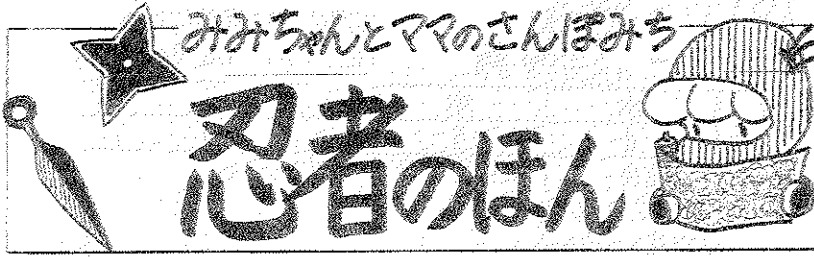 みみちゃんとママのさんぽみち
忍者のほん